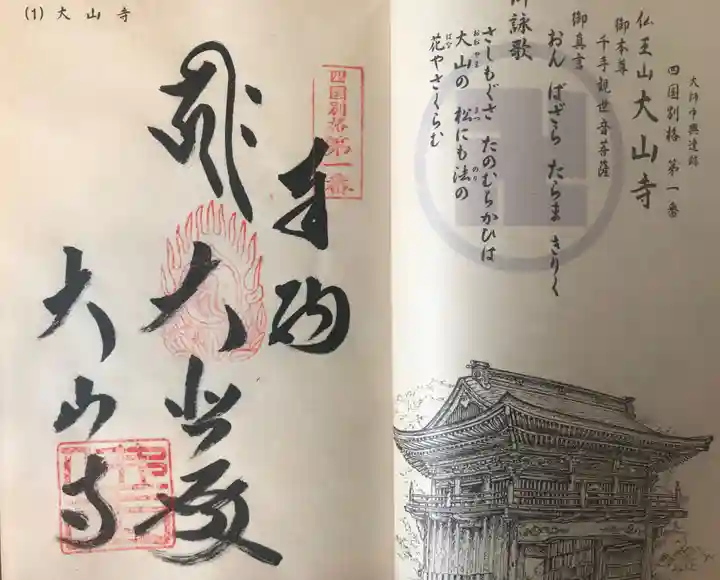 大師中興遺跡
四国別格 第一番
仏王山大山寺
御本尊
千手観世音菩薩
御真言
おん ばざら たらま きりく
御詠歌
さしもぐさ たのむちかひは
大山の 松にも法の
おおやま まつ のり
花やさくらむ
はな
(1) 大山寺
四国別格第一番
奉納
大悲殿
大山寺